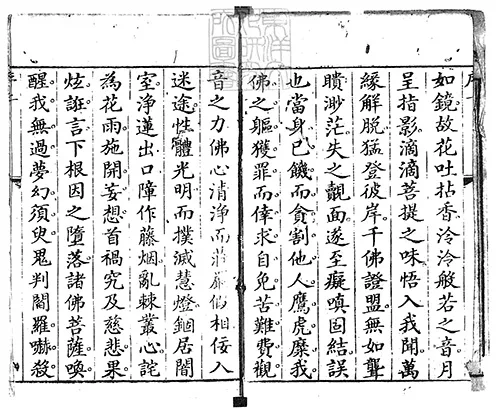 序
如鏡故花吐拈香泠泠般若之音月
呈指影滴滴菩提之味悟入我聞萬
緣解脫猛登彼岸千佛證盟無如聾
瞶渺茫失之覿面遂至癡嗔固結誤
也當身已饑而貪割他人鷹虎糜我
佛之軀獲罪而倖求自免苦難費觀
音之力佛心清淨而莊嚴假相佞入
迷途性體光明而撲滅慧燈錮居闇
室淨蓮出口障作藤烟亂棘叢心詫
為花雨施開妄想首禍究及慈悲果
炫誑言下根因之墮落諸佛菩薩喚
醒我無過夢幻須臾鬼判閻羅嚇殺